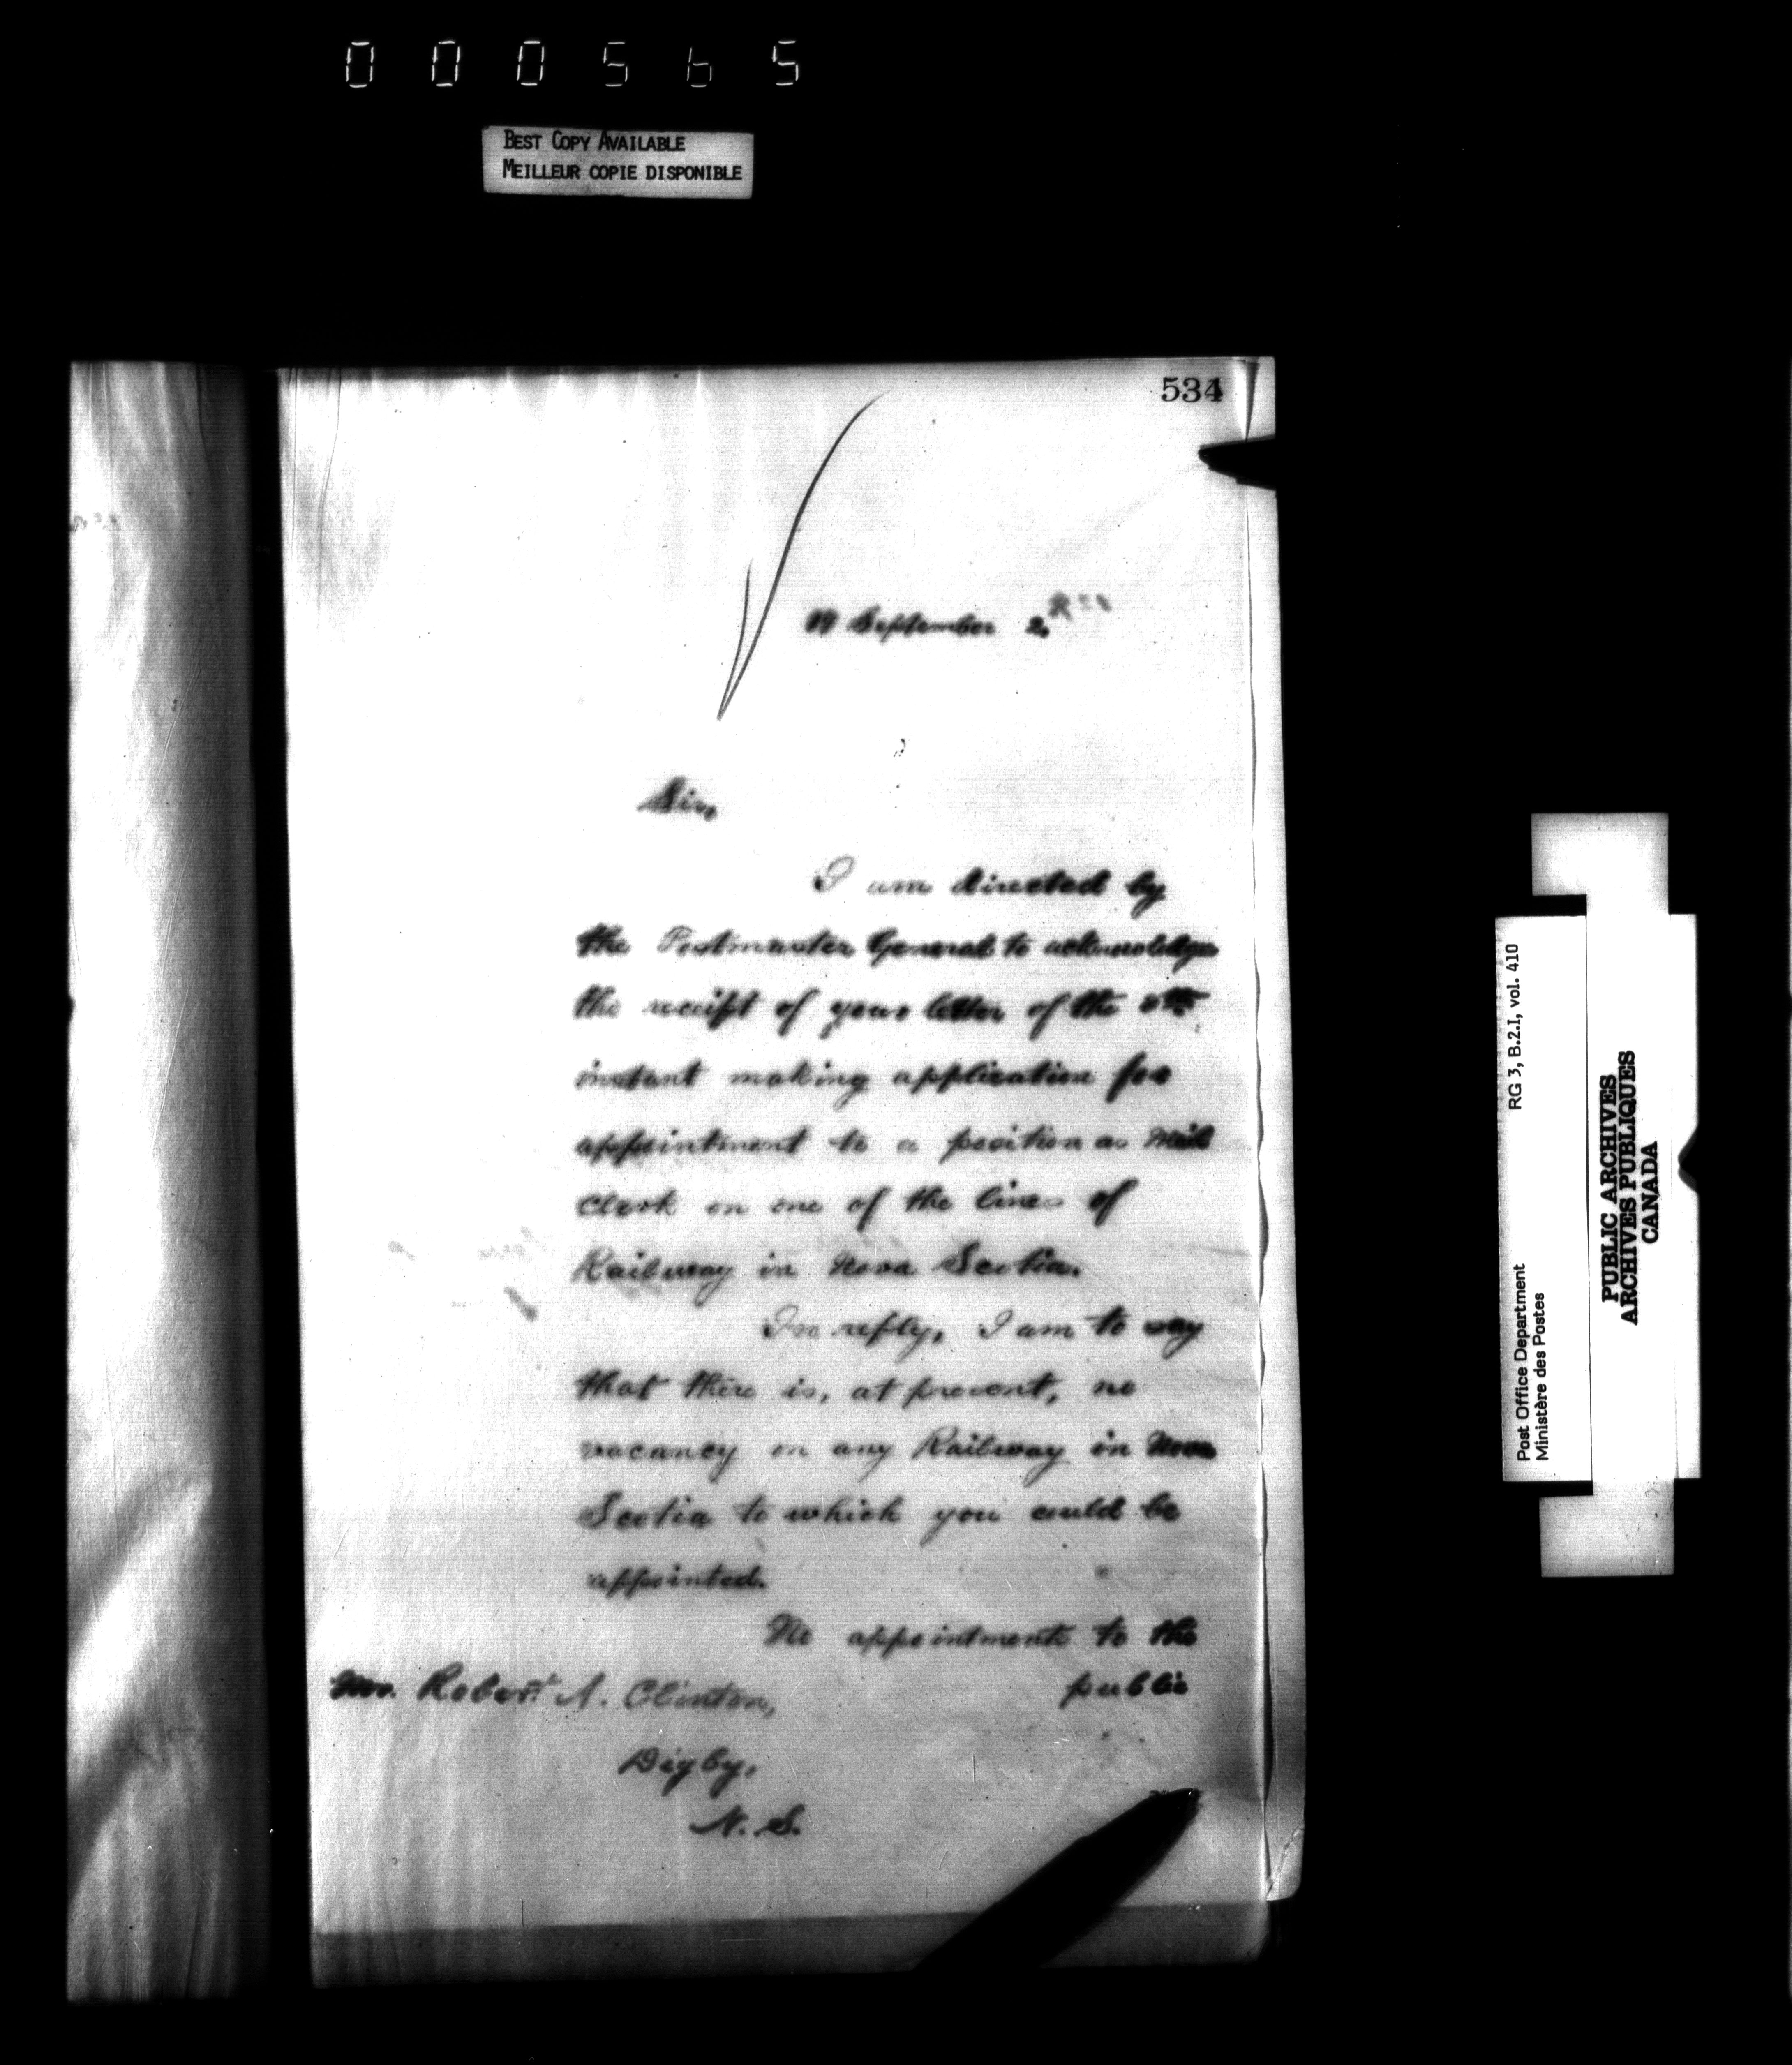 000565
BEST COPY AVAILABLE
MEILLEUR COPIE DISPONIBLE
534
September 2.
Sir,
I am directed by
the Postmaster General to acknowledge
the receipt of your letter of the 8th
instant making application for
appointment to a position as Mail
Clerk on one of the lines of
Railway in Nova Scotia.
In reply, I am to say
that there is, at present, no
vacancy on any Railway in Nova
Scotia to which you could be
appointed.
No appointments to the
public
Mr. Robert A. Clinton,
Digby,
N. S.
Post Office Department
Ministère des Postes
RG 3, B.2.I, vol. 410
PUBLIC ARCHIVES
ARCHIVES PUBLIQUES
CANADA